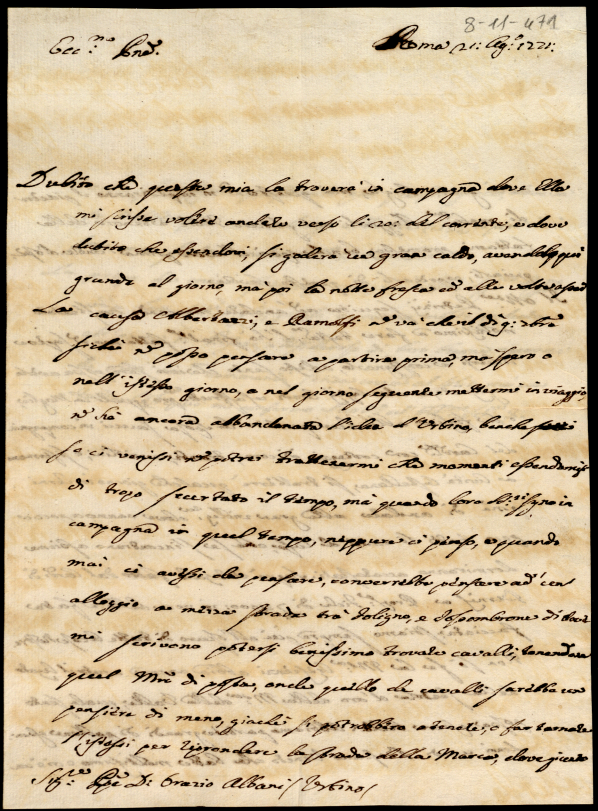 8-11-471
Ecc.mo Pne.
Roma 21: Ag.o 1771:
Dubito che questa mia la troverà in campagna dove Ella
mi scrisse volere andare verso li 20: del corrente, e dove
dubito che essendoci, si goderà un gran caldo, avendolo qui
grande al giorno, ma poi la notte fresca ed alle volte assai
La causa Albertazzi, e Ramolfi nē và che il dì 9: 
sichè nē posso pensare a partire prima, ma spero o
nell'istesso giorno, o nel giorno seguente mettermi in viaggio,
nē hò ancora abbandonata l'idea d'Urbino, benche
se ci venissi nē potrei trattenermi che momenti essendomisi
di troppo scortato il tempo, ma quando loro Sig.ri siano in
campagna in quel tempo, neppure ci penso, e quando
mai ci avessi da pensare, converrebbe pensare ad un
alloggio a mezza strada trà Foligno, e Fossombrone di dove
mi scrivono potersi benissimo trovare cavalli, tenendone
quel Mrō di posta, onde quello de cavalli sarebbe un
pensiere di meno, giachè si potrebbero ottenere, o far tornare
l'istessi per riprendere la strada della Marca, dove
Sig.re Ppē D: Orazio Albani / Urbino /